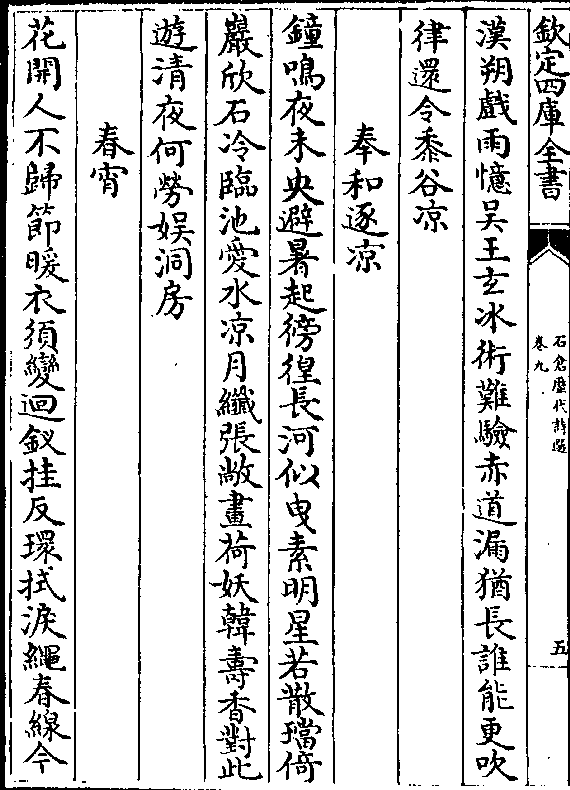 欽定四庫全書
石倉歷代詩選
卷九
五
漢朔戲雨憶吴王玄冰術難驗赤道漏猶長誰能更吹
律還令黍谷凉
奉和逐凉
鐘鳴夜未央避暑起徬徨長河似曳素明星若散璫倚
巖欣石冷臨池愛水凉月纖張敞畫荷妖韓壽香對此
遊清夜何勞娱洞房
春宵
花開人不歸節暖衣須變迴釵挂反環拭淚繩春線今